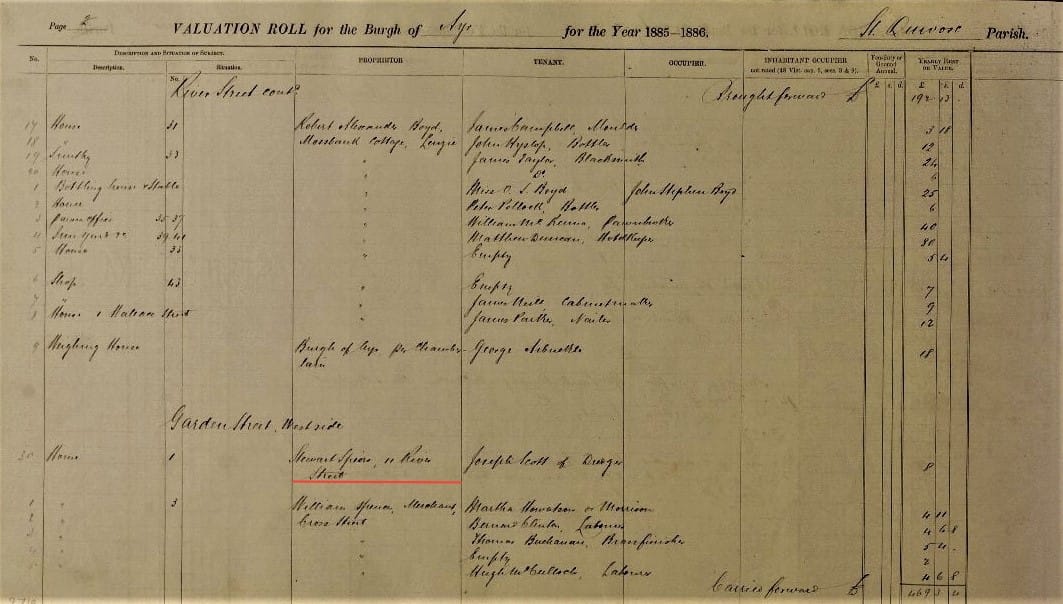 Page 2 VALUATION ROLL for the Burgh of Ayr for the Year 1885–1886. St. Quivox Parish.
No. DESCRIPTION AND SITUATION OF SUBJECT. PROPRIETOR TENANT. OCCUPIER. INHABITANT OCCUPIER Feuduty or Ground Annual. YEARLY RENT OR VALUE.
Description. Situation. not rated (48 Vict. cap. 3, secs. 3 & 9).
No. £ s. d. £ s. d.
River Street contd Brought forward £ 192 13
17 House 31 Robert Alexander Boyd, James Campbell, Moulder 3 18
18 " Mossbank Cottage, Lenzie John Hyslop, Bottler 12
19 Smithy 33 " James Taylor, Blacksmith 24
20 House " Do. 6
1 Bottling house & Stable " Miss O. S. Boyd John Stephen Boyd 25
2 House " Peter Pollock, Bottler 6
3 Pawn office 35 37 " William McKenna, Pawnbroker 40
4 39 41 " Matthew Duncan, Hotelkeeper 80
5 House 33 " Empty 5 4
6 Shop 43 " Empty 7
7 " " James Neill Cabinetmaker 9
8 House 1 Wallace Street " James Parker, Nailer 12
9 Weighing House Burgh of Ayr per Chamber- George Arbuckle 18
lain
Garden Street, West side
30 House 1 Stewart Speirs, 11 River Joseph Scott of 8
Street
1 " 3 William Spence, Merchant, Martha Howatson or Morrison 4 11
2 " Cross Street Bernard Clinton, Labourer 4 6 8
3 " " Thomas Buchanan, Brassfinisher 5 4
4 " " Empty 2
5 " " Hugh McCulloch, Labourer 4 6 8
Carried forward £ 469 3 4